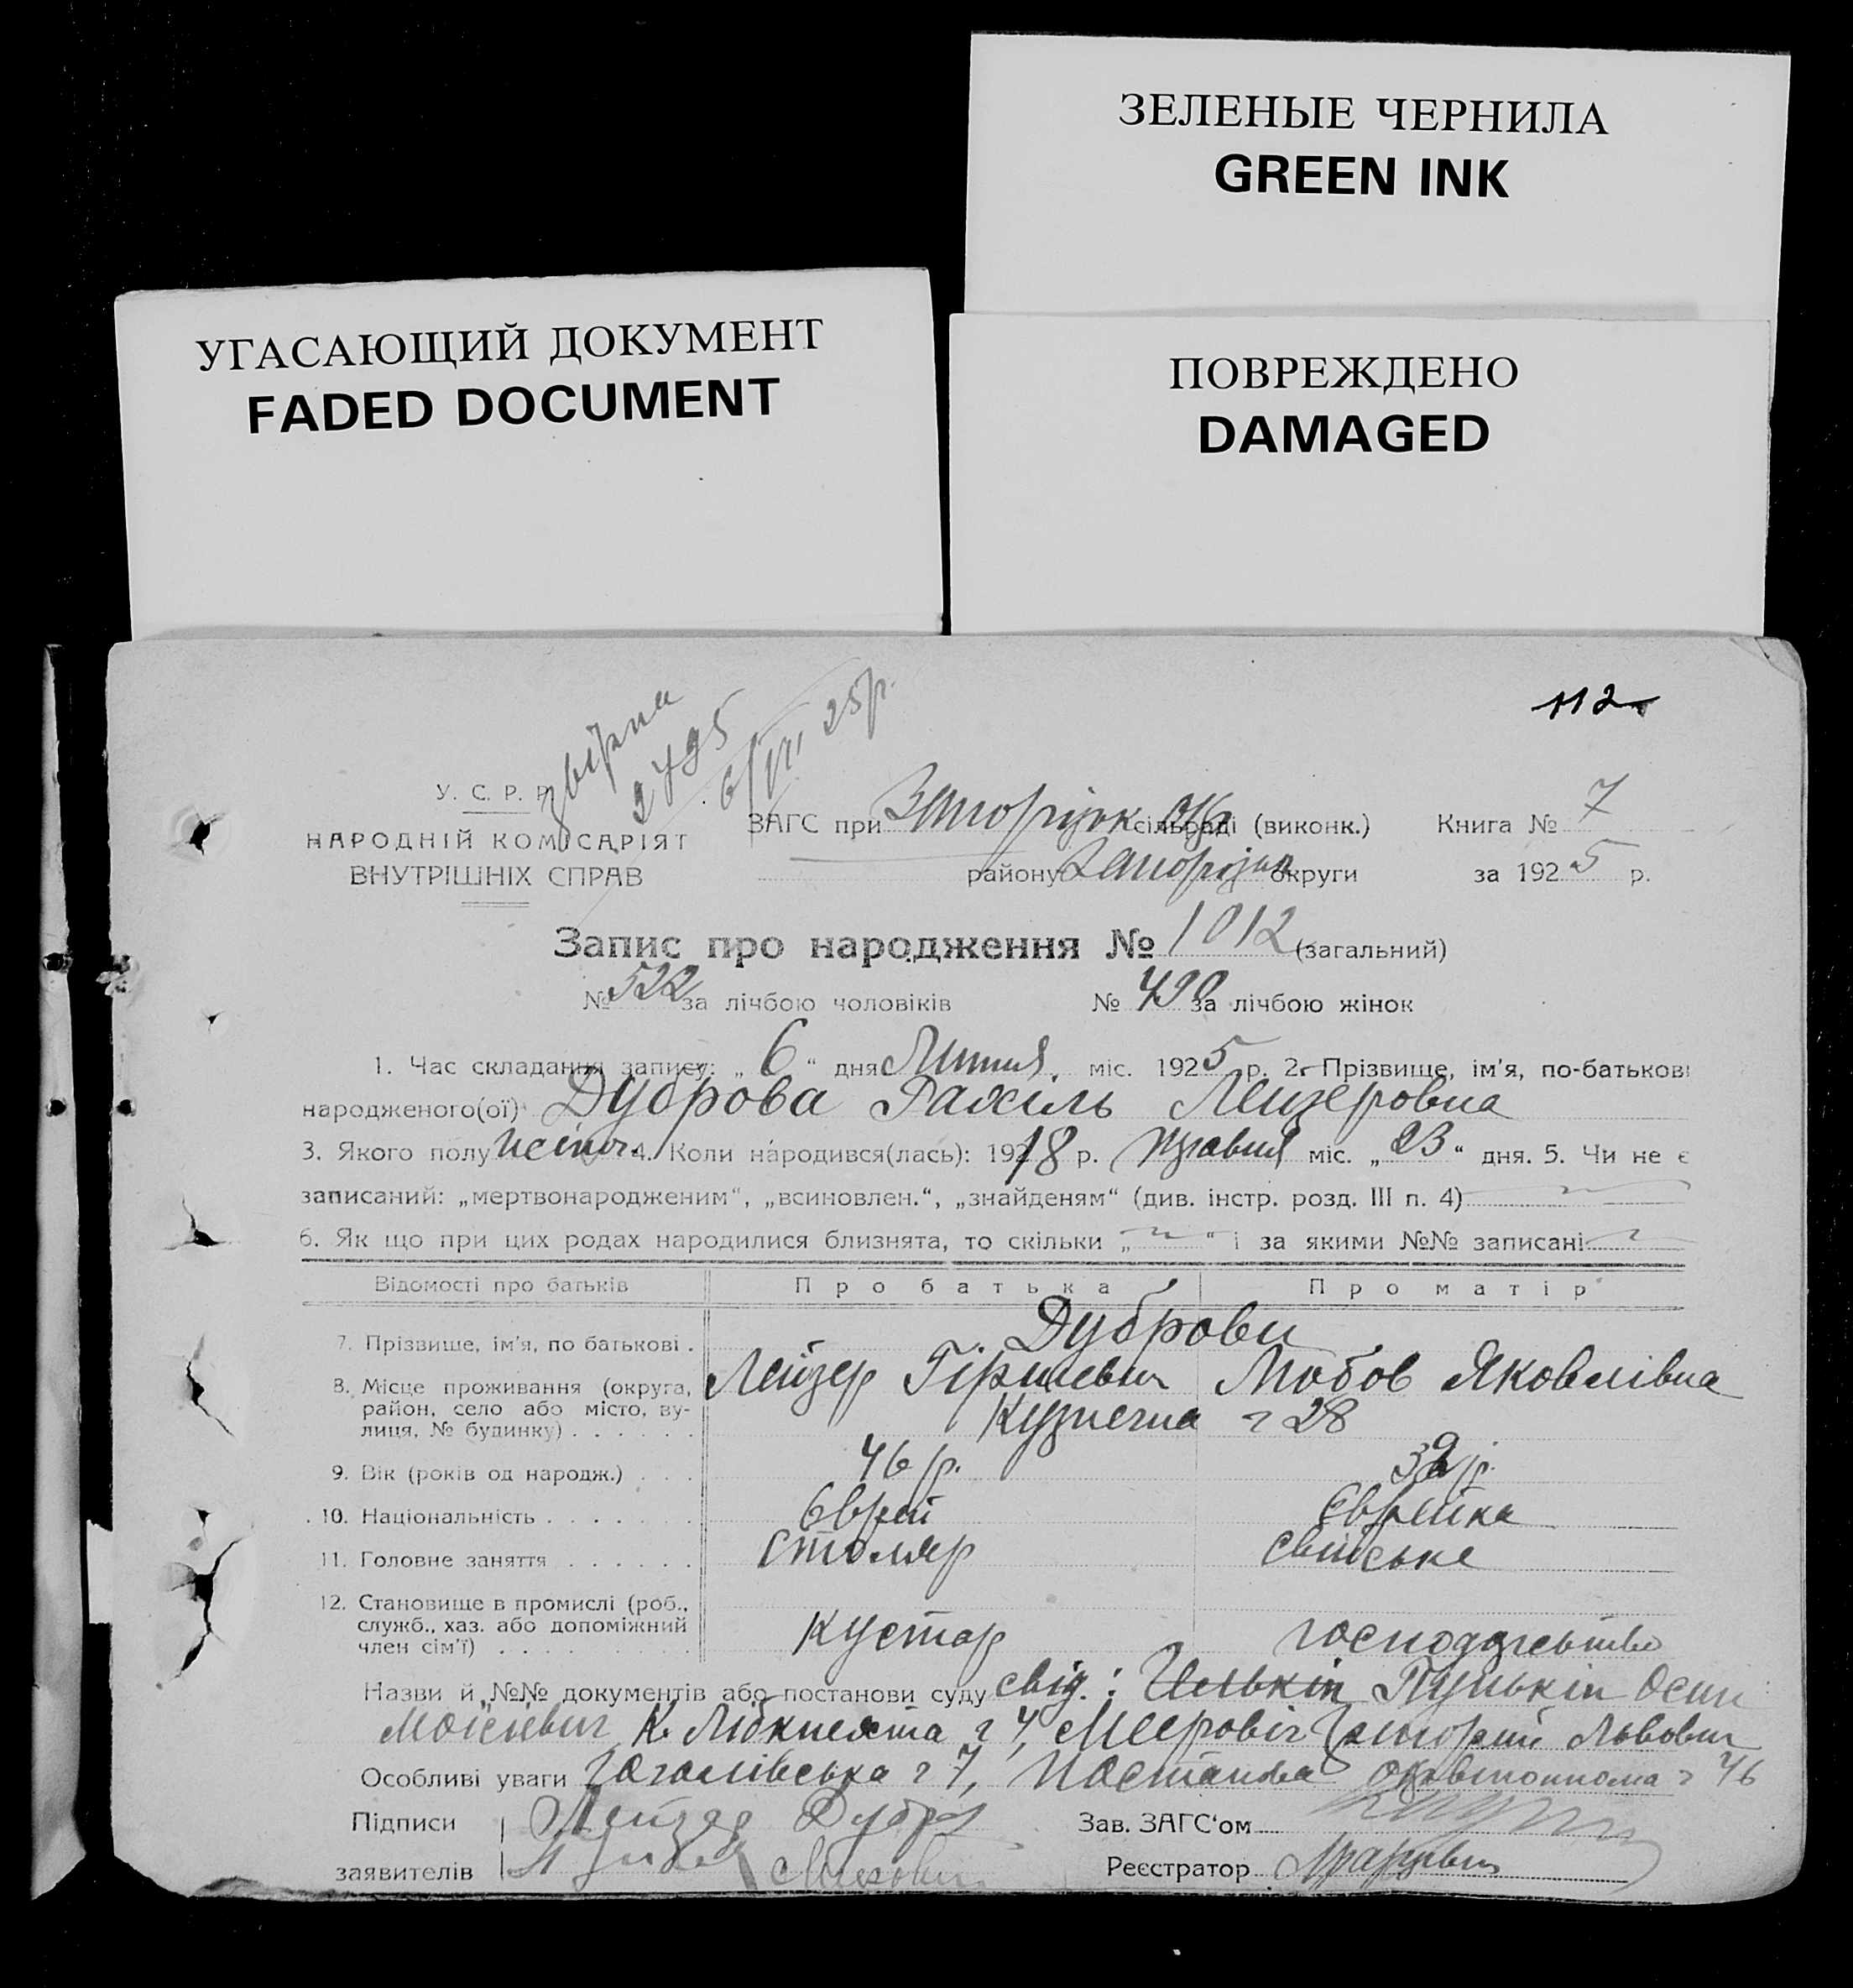 ЗЕЛЕНЫЕ ЧЕРНИЛА
GREEN INK
УГАСАЮЩИЙ ДОКУМЕНТ
FADED DOCUMENT
ПОВРЕЖДЕНО
DAMAGED
112
звірка
2795
6/VII 25р.
У. С. Р. Р.
НАРОДНІЙ КОМІСАРІЯТ
ВНУТРІШНІХ СПРАВ
ЗАГС при Запоріжк сільраді (виконк.) Книга № 7
району Запоріжк округи за 1925 р.
Запис про народження № 1012 (загальний)
№ 522 за лічбою чоловіків № 490 за лічбою жінок
1. Час складання запису: „ 6 “ дня Липня міс. 1925 р. 2. Прізвище, ім'я, по-батькові
народженого(ої) Дуброва Рахіль Лейзеровна
3. Якого полу жіноч. 4. Коли народився(лась): 1918 р. Травня міс. „ 23 “ дня. 5. Чи не є
записаний: „мертвонародженим“, „всиновлен.“, „знайденям“ (див. інстр. розд. III п. 4)
6. Як що при цих родах народилися близнята, то скільки „ “ і за якими №№ записані
Відомості про батьків Про батька Про матір
7. Прізвище, ім'я, по батькові . Дуброви
Лейзер Гіршевич Любов Яковлівна
8. Місце проживання (округа, район, село або місто, вулиця, № будинку) . . . . . . Кузнечна ч 28
9. Вік (років од народж.) . . . 46 р. 39 р.
10. Національність . . . . . . . Єврей Єврейка
11. Головне заняття . . . . . . Столяр свійське
12. Становище в промислі (роб., служб., хаз. або допоміжний член сім'ї) . . . . . . . . . Кустар господарство
Назви й №№ документів або постанови суду свід.: Пунькін Осип
Мойсієвич К. Лібкнехта ч 4, Меєровіч Григорій Львович
Особливі уваги Гоголівська ч 7, Постанова ч 46
Підписи Лейзер Дубров Зав. ЗАГС'ом
заявителів Реєстратор